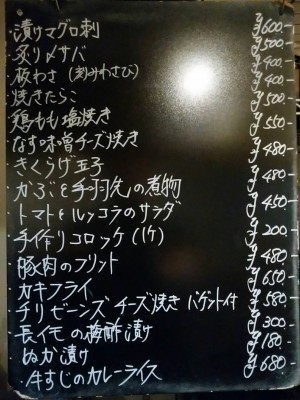 ・漬けマグロ刺 ¥600-
・炙り〆サバ ¥500-
・板わさ (刻みわさび) ¥400-
・焼きたらこ ¥400-
・鶏もも塩焼き ¥500-
・なす味噌チーズ焼き ¥550-
・きくらげ玉子 ¥480-
・かぶと手羽先の煮物 ¥480-
・トマトとルッコラのサラダ ¥450-
・手作りコロッケ (1ケ) ¥200-
・豚肉のフリット ¥480-
・カキフライ ¥650-
・チリビーンズチーズ焼き バゲット付 ¥580-
・長イモの梅酢漬け ¥300-
・ぬか漬け ¥180-
・牛すじのカレーライス ¥680-